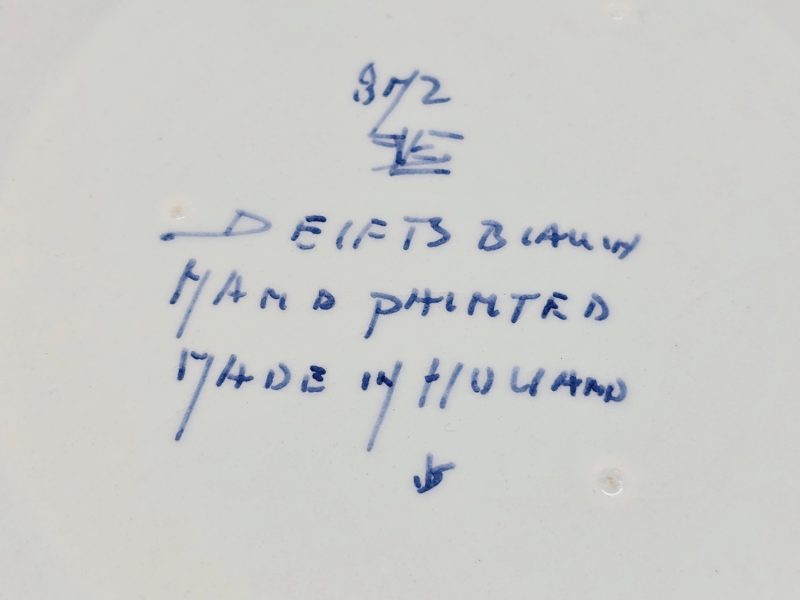 DELFTS BLAUW
HAND PAINTED
MADE IN HOLLAND